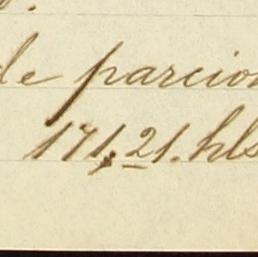 de parcion
171,21. hls